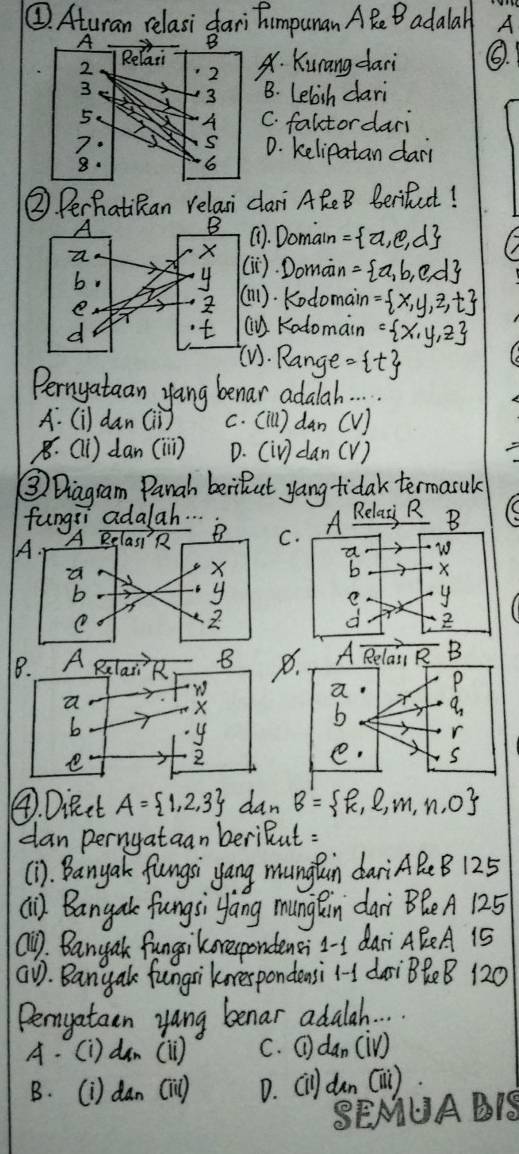 ① Aturan relasi dari himpunan A ke B adalah
A Relasi B
2 · 2
3 · 3
5 · 4
7 · 5
8 · 6
A. Kurang dari
B. Lebih dari
C. faktor dari
D. Kelipatan dari
② Perhatikan relasi dari A ke B berikut!
A B
a x
b y
c z
d t
(i). Domain = {a,c,d}
(ii). Domain = {a,b,c,d}
(iii). Kodomain = {x,y,z,t}
(iv). Kodomain = {x,y,z}
(v). Range = {t}
Pernyataan yang benar adalah....
A. (i) dan (ii)
B. (ii) dan (iii)
C. (iii) dan (v)
D. (iv) dan (v)
③ Diagram Panah berikut yang tidak termasuk
fungsi adalah...
A. A Relasi R B
a x
b y
c z
B. A Relasi R B
a w
b x
y
c z
C. A Relasi R B
a w
b x
c y
d z
D. A Relasi R B
a p
b q
r
c s
④. Diket A = {1,2,3} dan B = {k,l,m,n,o}
dan pernyataan berikut :
(i). Banyak fungsi yang mungkin dari A ke B 125
(ii). Banyak fungsi yang mungkin dari B ke A 125
(iii). Banyak fungsi korespondensi 1-1 dari A ke A 15
(iv). Banyak fungsi korespondensi 1-1 dari B ke B 120
Pernyataan yang benar adalah....
A. (i) dan (ii)
B. (i) dan (iii)
C. (i) dan (iv)
D. (ii) dan (iii)
⑥.
A
SEMUA BIS